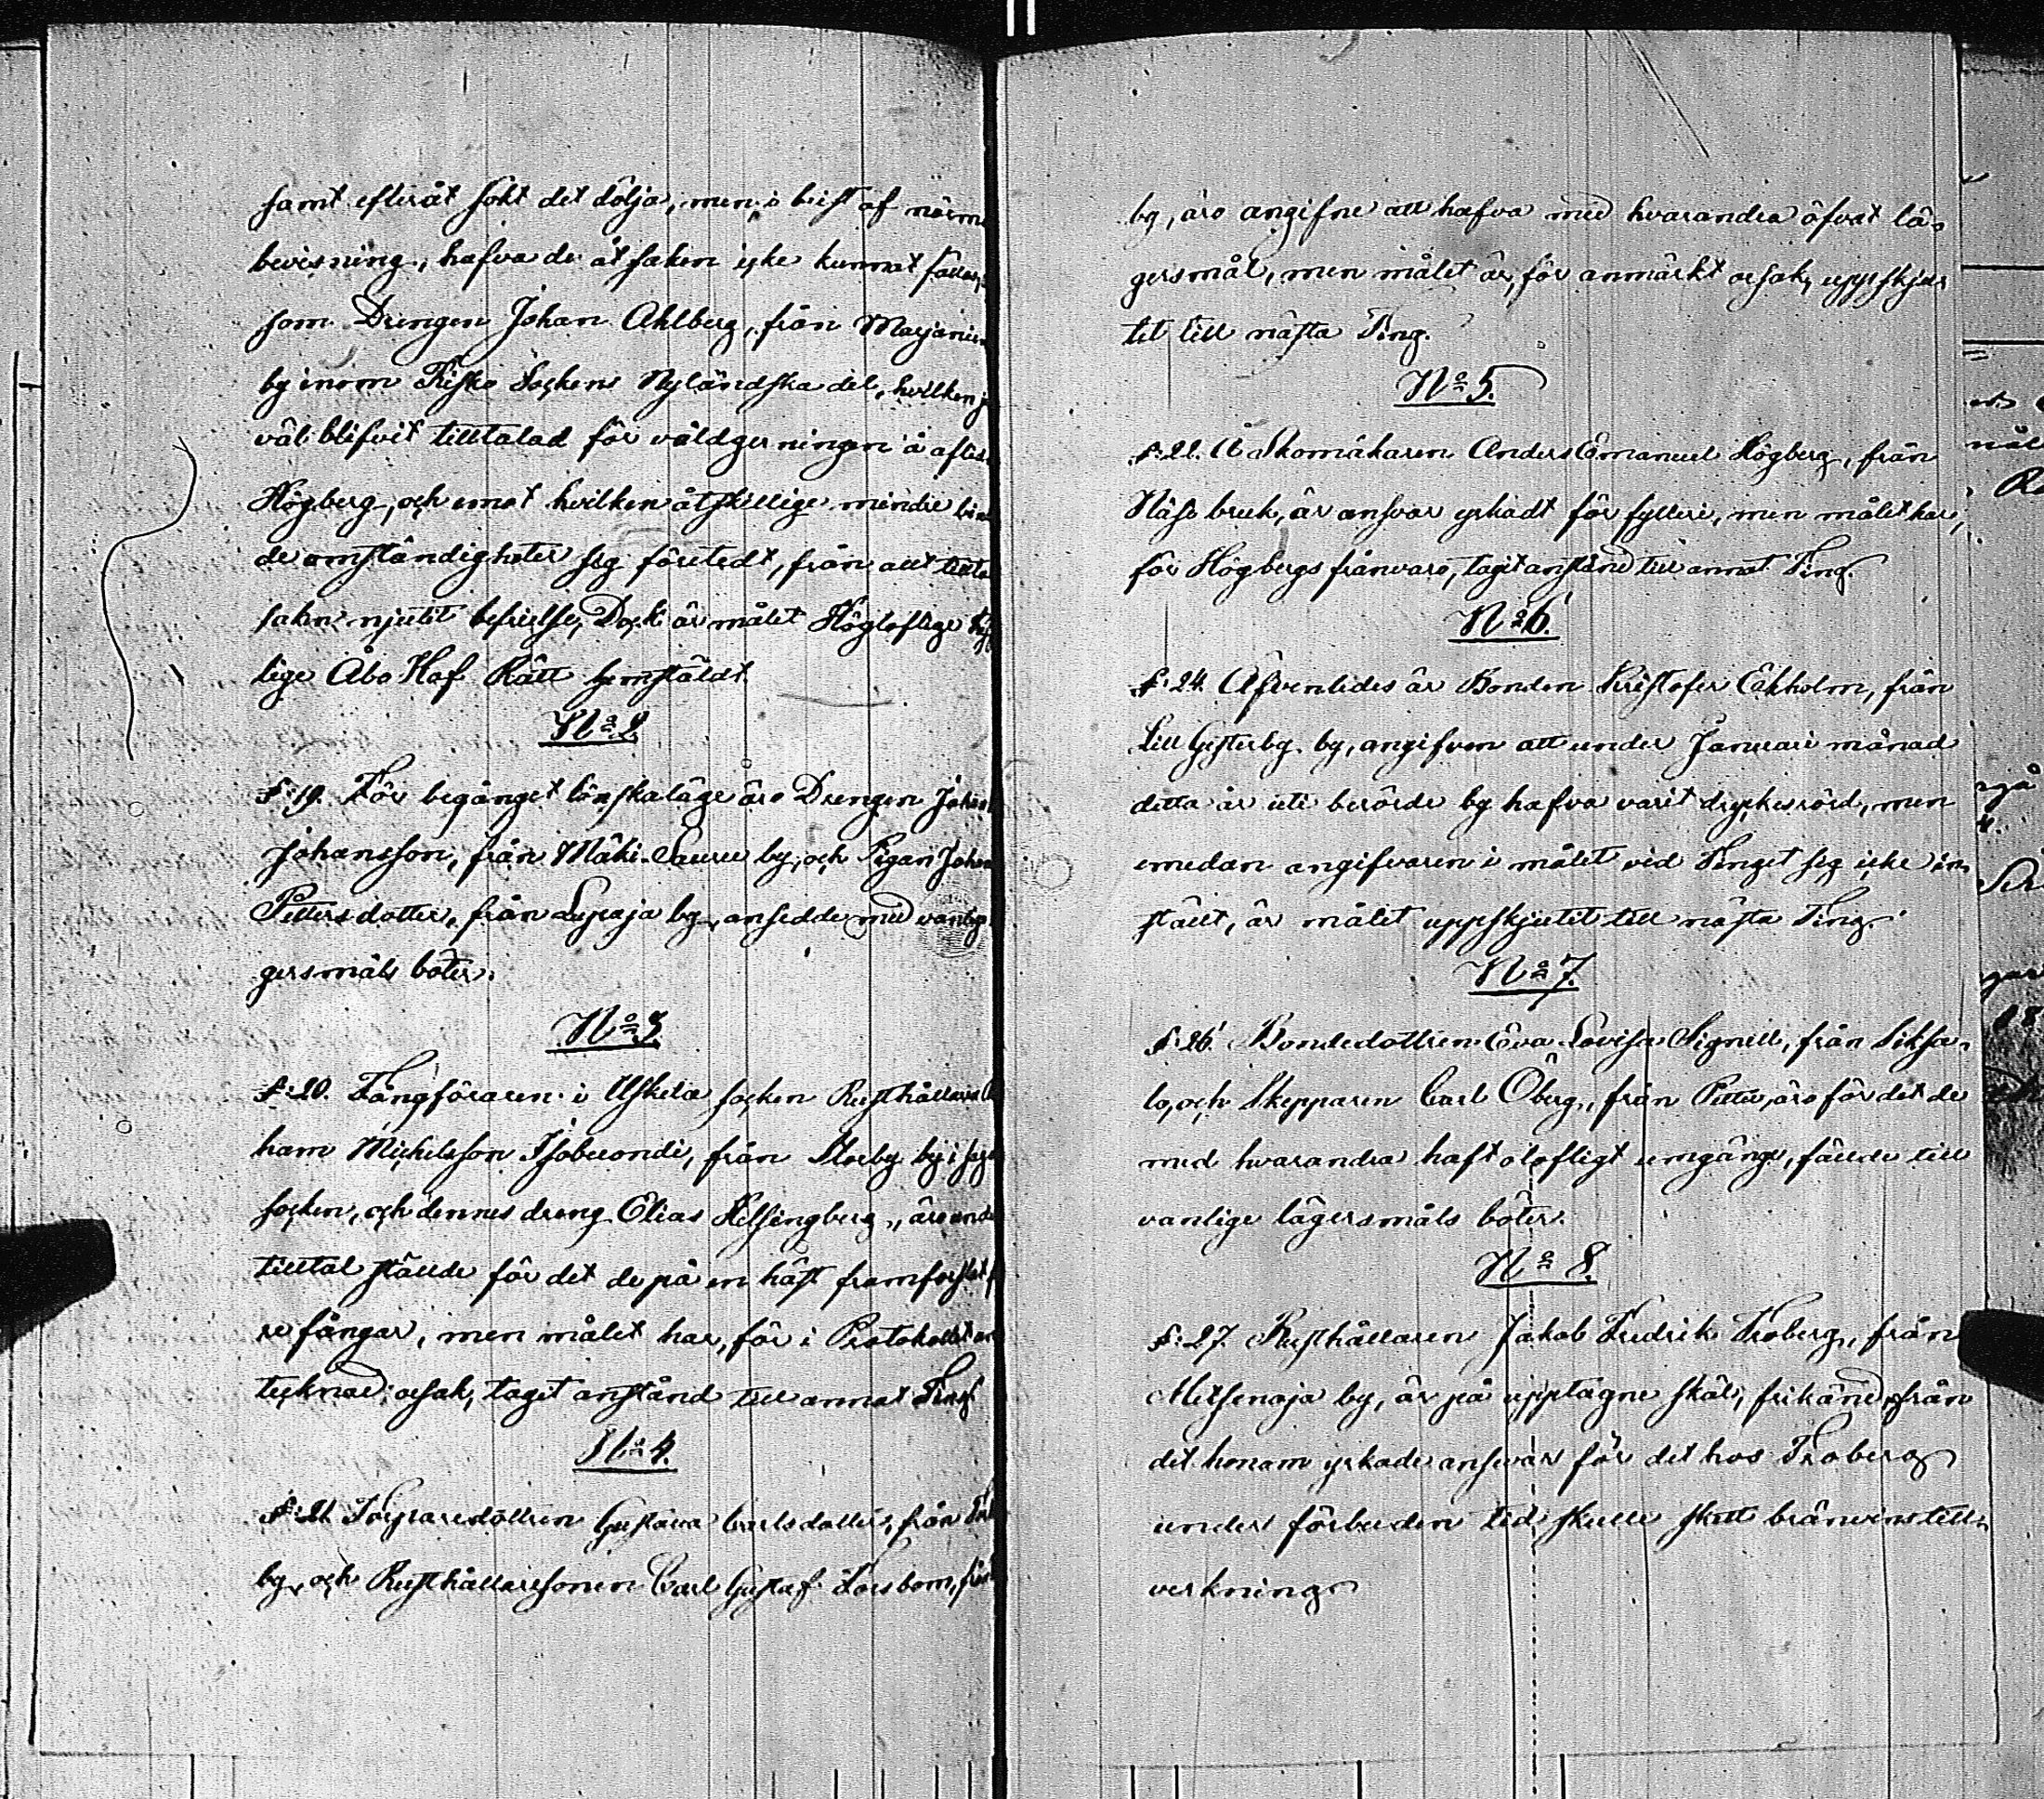 samt efteråt sökt det dölja, men, i brist af närm
bevisning, hafva de åt saken icke kunnat fällas,
som Drengen Johan Ahlberg, från Marjanie
by inom Kisko Sockens Nyländska del, hvilken j
väl blifvit tilltalad för våldgerningen å aflid
Högberg, och emot hvilken åtskillige mindre bin
de omständigheter sig företedt, från allt tillta
saken njutit befrielse, Dock är målet Höglofliga Kej
lige Åbo Hof Rätt hemstäldt
No 2.
§. 19. För begånget lönskaläge äro Drengen Johan
Johansson, från Mäki-Sauru by, och Pigan Johan
Pettersdotter, från Lupaja by, ansedde med vanlig
gersmåls böter.
No 3.
§. 20. Fångföraren i Uskela socken Rusthållaren
ham Michelsson Isoberondi, från Storby by i
socken, och dennes dreng Elias Helsingberg, äro unde
tilltal stälde för det de på en häst framforslat f
re fångar, men målet har, för i Protokollet an
tecknad orsak, taget anstånd till annat Ting
No 4.
§. 21. Torparedottren Gustava Carlsdotter, från
by, och Rusthållaresonen Carl Gustaf Forsbom, från
by, äro angifne att hafva med hvarandra öfvat lä-
gersmål, men målet är, för anmärkt orsak, uppskju-
tit till nästa Ting.
No 5.
§. 22. Å Skomakaren Anders Emanuel Högberg, från
Näse bruk, är ansvar yrkadt för fylleri, men målet har,
för Högbergs frånvaro, tagit anstånd till annat Ting.
No 6.
§. 24. Äfvenledes är Bonden Kristofer Ekholm, från
Lill Gesterby by, angifven att under Januari månad
detta år uti berörde by hafva varit dryckesrörd, men
emedan angifvaren i målet vid Tinget sig icke in-
stält, är målet uppskjutit till nästa Ting.
No 7.
§. 26. Bondedottren Eva Lovisa Signell, från Siksa-
lo, och Skepparen Carl Öberg, från Pettu, äro för det de
med hvarandra haft olofligt umgänge, fällde till
vanlige lägersmåls böter.
No 8.
§. 27. Rusthållaren Jakob Fredrik Froberg, från
Metsenoja by, är på upptagne skäl, frikänd från
det honom yrkade ansvar för det hos Froberg
under förbuden tid skulle skett bränvins till-
verkning